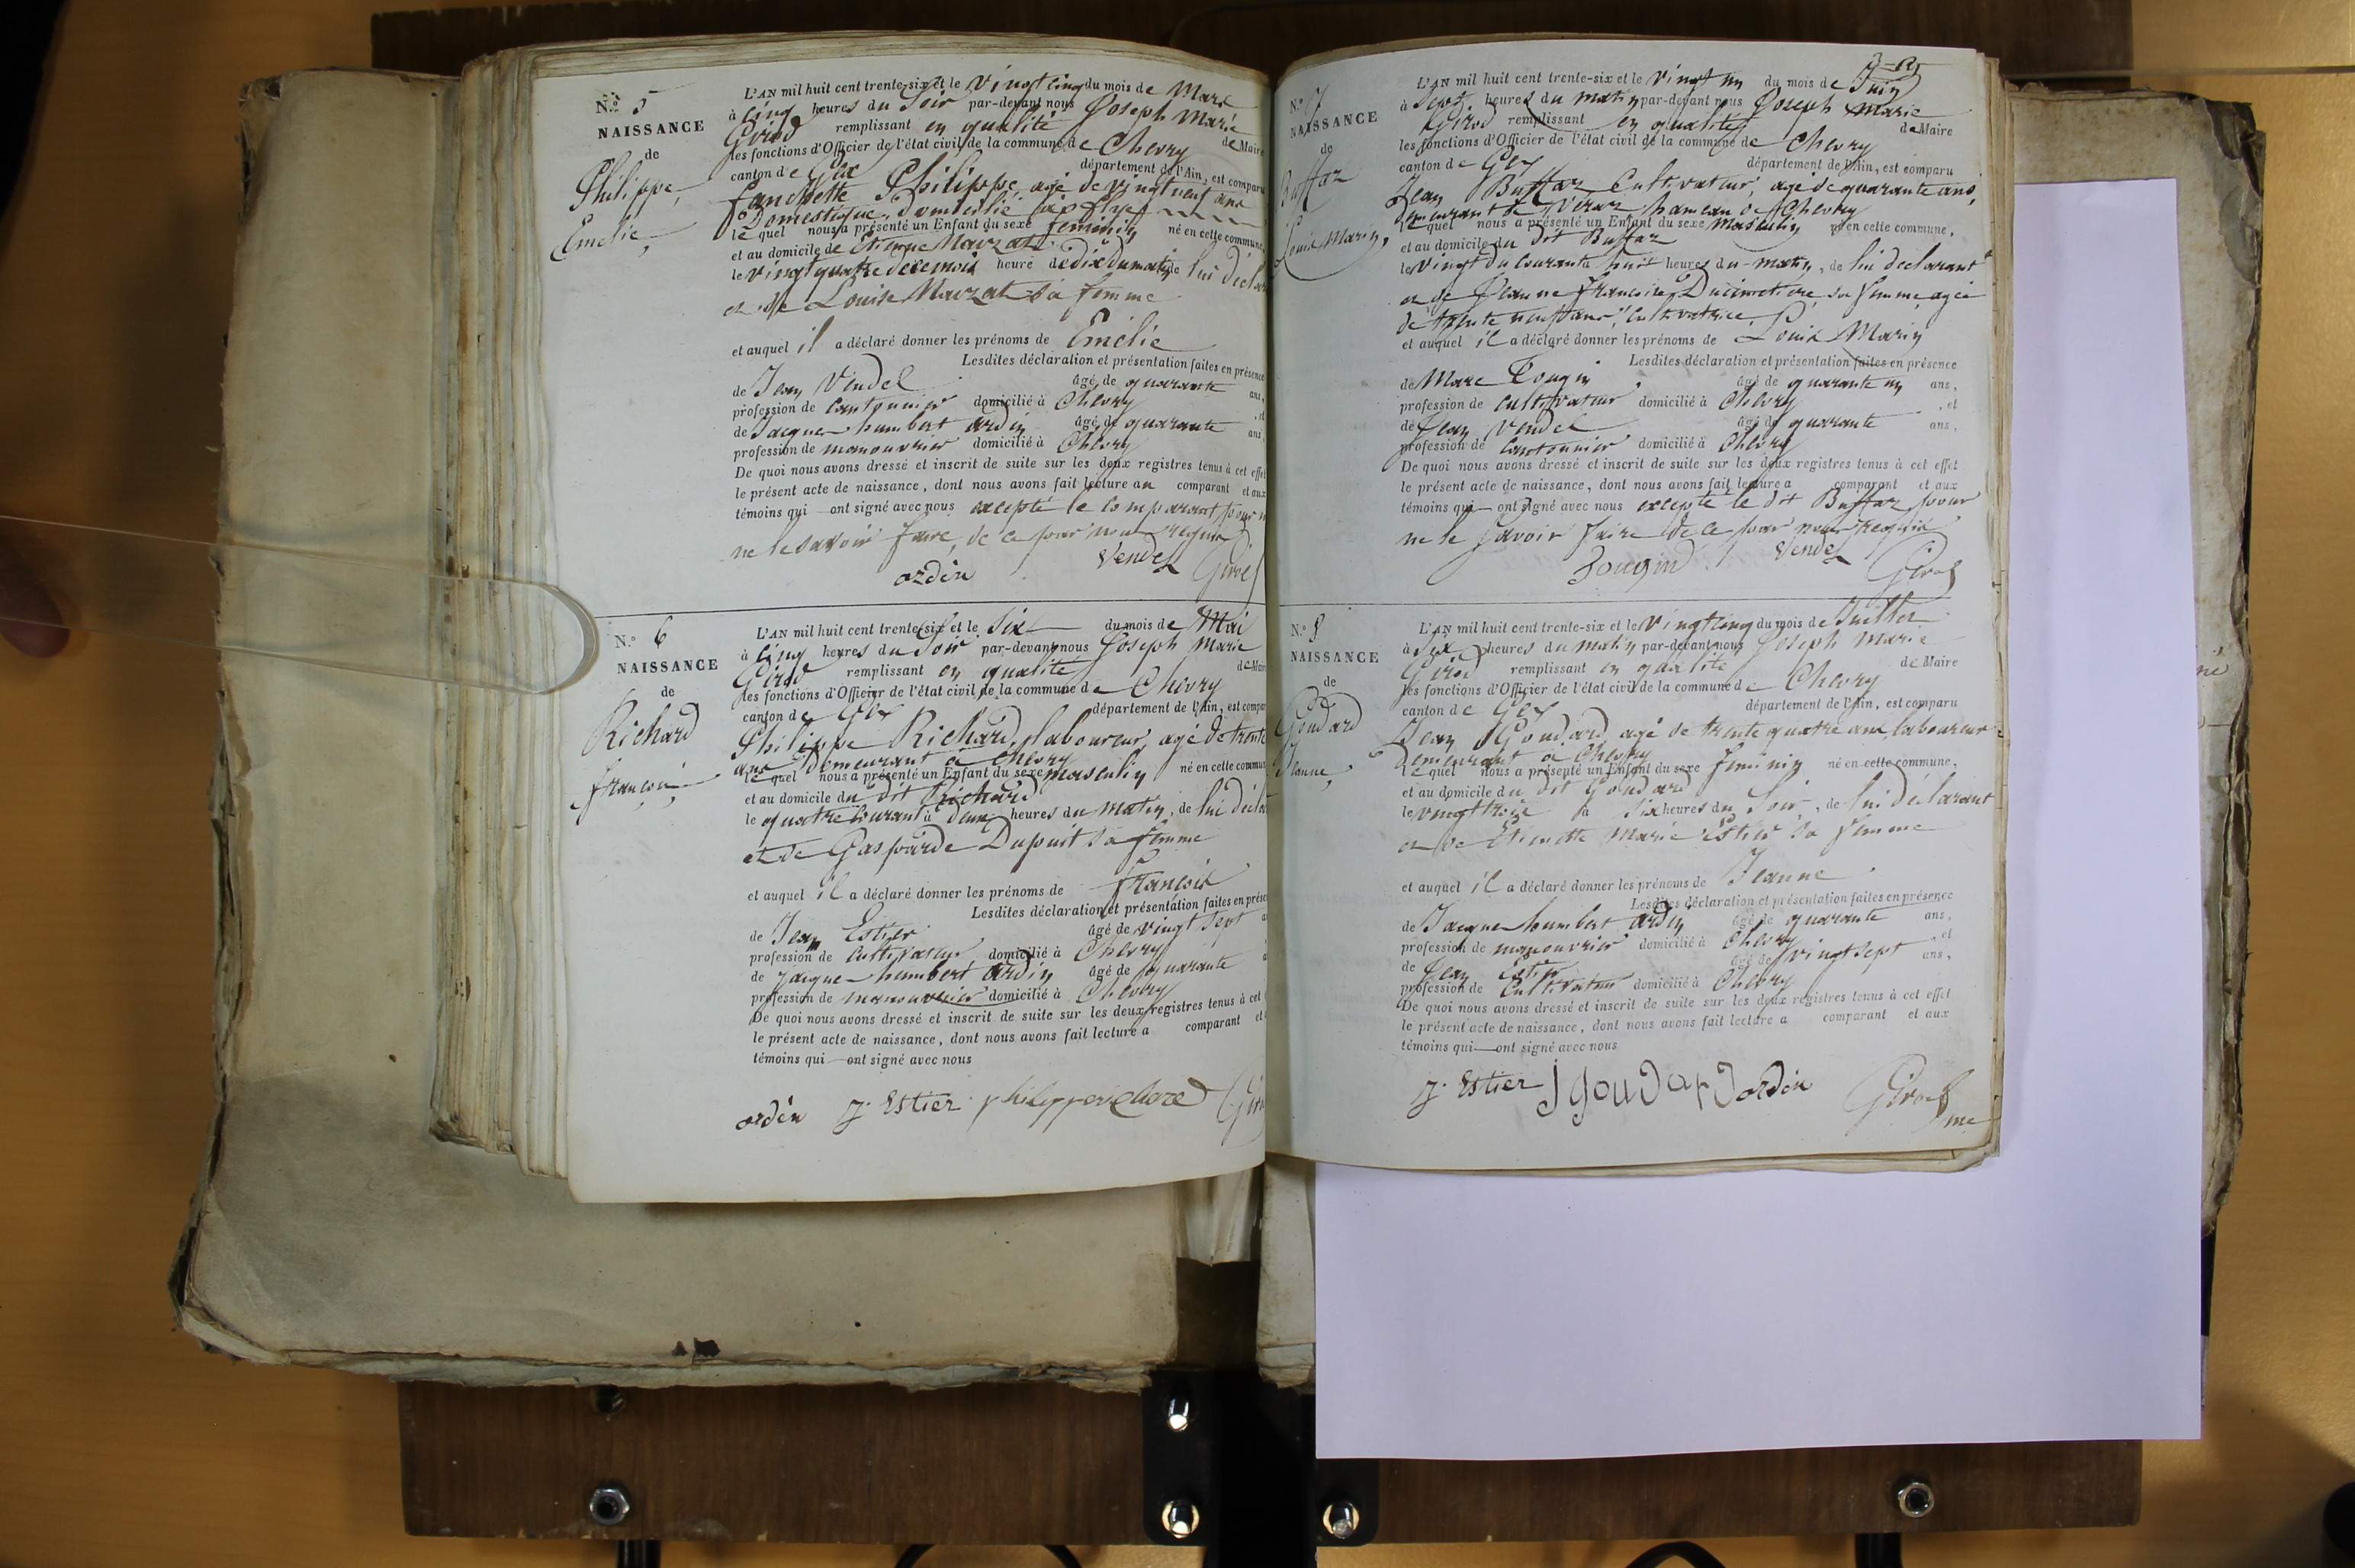 N.o 5
NAISSANCE
de
Philippe,
Emelie,
L'AN mil huit cent trente-six et le vingt cinq du mois de Mars
à cinq heures du soir par-devant nous Joseph Marie
Girod remplissant en qualité de Maire
les fonctions d'Officier de l'état civil de la commune de Chevry
canton de Gex département de l'Ain, est comparu
fanchette Philippe, agé de vingt neuf ans
Domestique, Domicilié
le quel nous a présenté un Enfant du sexe feminin né en cette commune,
et au domicile de Etienne Mavzat
le vingt quatre de ce mois heure de dix du matin de lui décla
et de Louise Mavzat sa femme
et auquel il a déclaré donner les prénoms de Emelie
Lesdites déclaration et présentation faites en présence
de Jean Vendel âgé de quarante ans,
profession de cantonnier domicilié à Chevry , et
de Jacque humbert ardin âgé de quarante ans,
profession de manouvrier domicilié à Chevry
De quoi nous avons dressé et inscrit de suite sur les deux registres tenus à cet effet
le présent acte de naissance, dont nous avons fait lecture au comparant et aux
témoins qui — ont signé avec nous excepté le comparant pour
ne le savoir faire, de ce par nous requis
Vendel Girod
ardin
N.o 6
NAISSANCE
de
Richard
françois,
L'AN mil huit cent trente-six et le six du mois de Mai
à cinq heures du soir par-devant nous Joseph Marie
Girod remplissant en qualité de Maire
les fonctions d'Officier de l'état civil de la commune de Chevry
canton de Gex département de l'Ain, est compar
Philippe Richard, laboureur, agé de trente
ans Demeurant à Chevry
le quel nous a présenté un Enfant du sexe masculin né en cette commun
et au domicile du dit Richard
le quatre courant à deux heures du matin, de lui décla
et de Gasparde Dupuit sa femme
et auquel il a déclaré donner les prénoms de françois
Lesdites déclaration et présentation faites en prése
de Jean Estier âgé de vingt sept a
profession de Cultivateur domicilié à Chevry
de Jacque humbert ardin âgé de quarante a
profession de manouvrier domicilié à Chevry
De quoi nous avons dressé et inscrit de suite sur les deux registres tenus à cet
le présent acte de naissance, dont nous avons fait lecture a comparant et
témoins qui — ont signé avec nous
ardin J. Estier philippe richard Giro
N.o 7
NAISSANCE
de
Buffaz
Louis Marin,
L'AN mil huit cent trente-six et le vingt un du mois de Juin
à sept heures du matin par-devant nous Joseph Marie
Girod remplissant en qualité de Maire
les fonctions d'Officier de l'état civil de la commune de Chevry
canton de Gex département de l'Ain, est comparu
Jean Buffaz Cultivateur, agé de quarante ans,
Demeurant à Veraz hameau de Chevry
le quel nous a présenté un Enfant du sexe Masculin né en cette commune,
et au domicile du dit Buffaz
le vingt du courant à huit heures du matin, de lui déclarant
et de Jeanne françoise Ducimetiere, sa femme, agée
de trente neuf ans, Cultivatrice,
et auquel il a déclaré donner les prénoms de Louis Marin
Lesdites déclaration et présentation faites en présence
de Marc Tougin âgé de quarante un ans,
profession de cultivateur domicilié à Chevry , et
de Jean Vendel âgé de quarante ans,
profession de Cantonnier domicilié à Chevry
De quoi nous avons dressé et inscrit de suite sur les deux registres tenus à cet effet
le présent acte de naissance, dont nous avons fait lecture a comparant et aux
témoins qui — ont signé avec nous excepté le dit Buffaz pour
ne le savoir faire de ce par nous requis
Tougin Vendel Girod
N.o 8
NAISSANCE
de
Goudard
Jeanne,
L'AN mil huit cent trente-six et le vingt cinq du mois de Juillet
à six heures du matin par-devant nous Joseph Marie
Girod remplissant en qualité de Maire
les fonctions d'Officier de l'état civil de la commune de Chevry
canton de Gex département de l'Ain, est comparu
Jean Goudard, agé de trente quatre ans, laboureur
Demeurant à Chevry
le quel nous a présenté un Enfant du sexe feminin né en cette commune,
et au domicile du dit Goudard
le vingt trois à six heures du soir, de lui déclarant
et de Etienette Marie Estier sa femme
et auquel il a déclaré donner les prénoms de Jeanne
Lesdites déclaration et présentation faites en présence
de Jacque humbert ardin âgé de quarante ans,
profession de manouvrier domicilié à Chevry , et
de Jean Estier âgé de vingt sept ans,
profession de Cultivateur domicilié à Chevry
De quoi nous avons dressé et inscrit de suite sur les deux registres tenus à cet effet
le présent acte de naissance, dont nous avons fait lecture a comparant et aux
témoins qui — ont signé avec nous
J. Estier J goudard ardin Girod
me